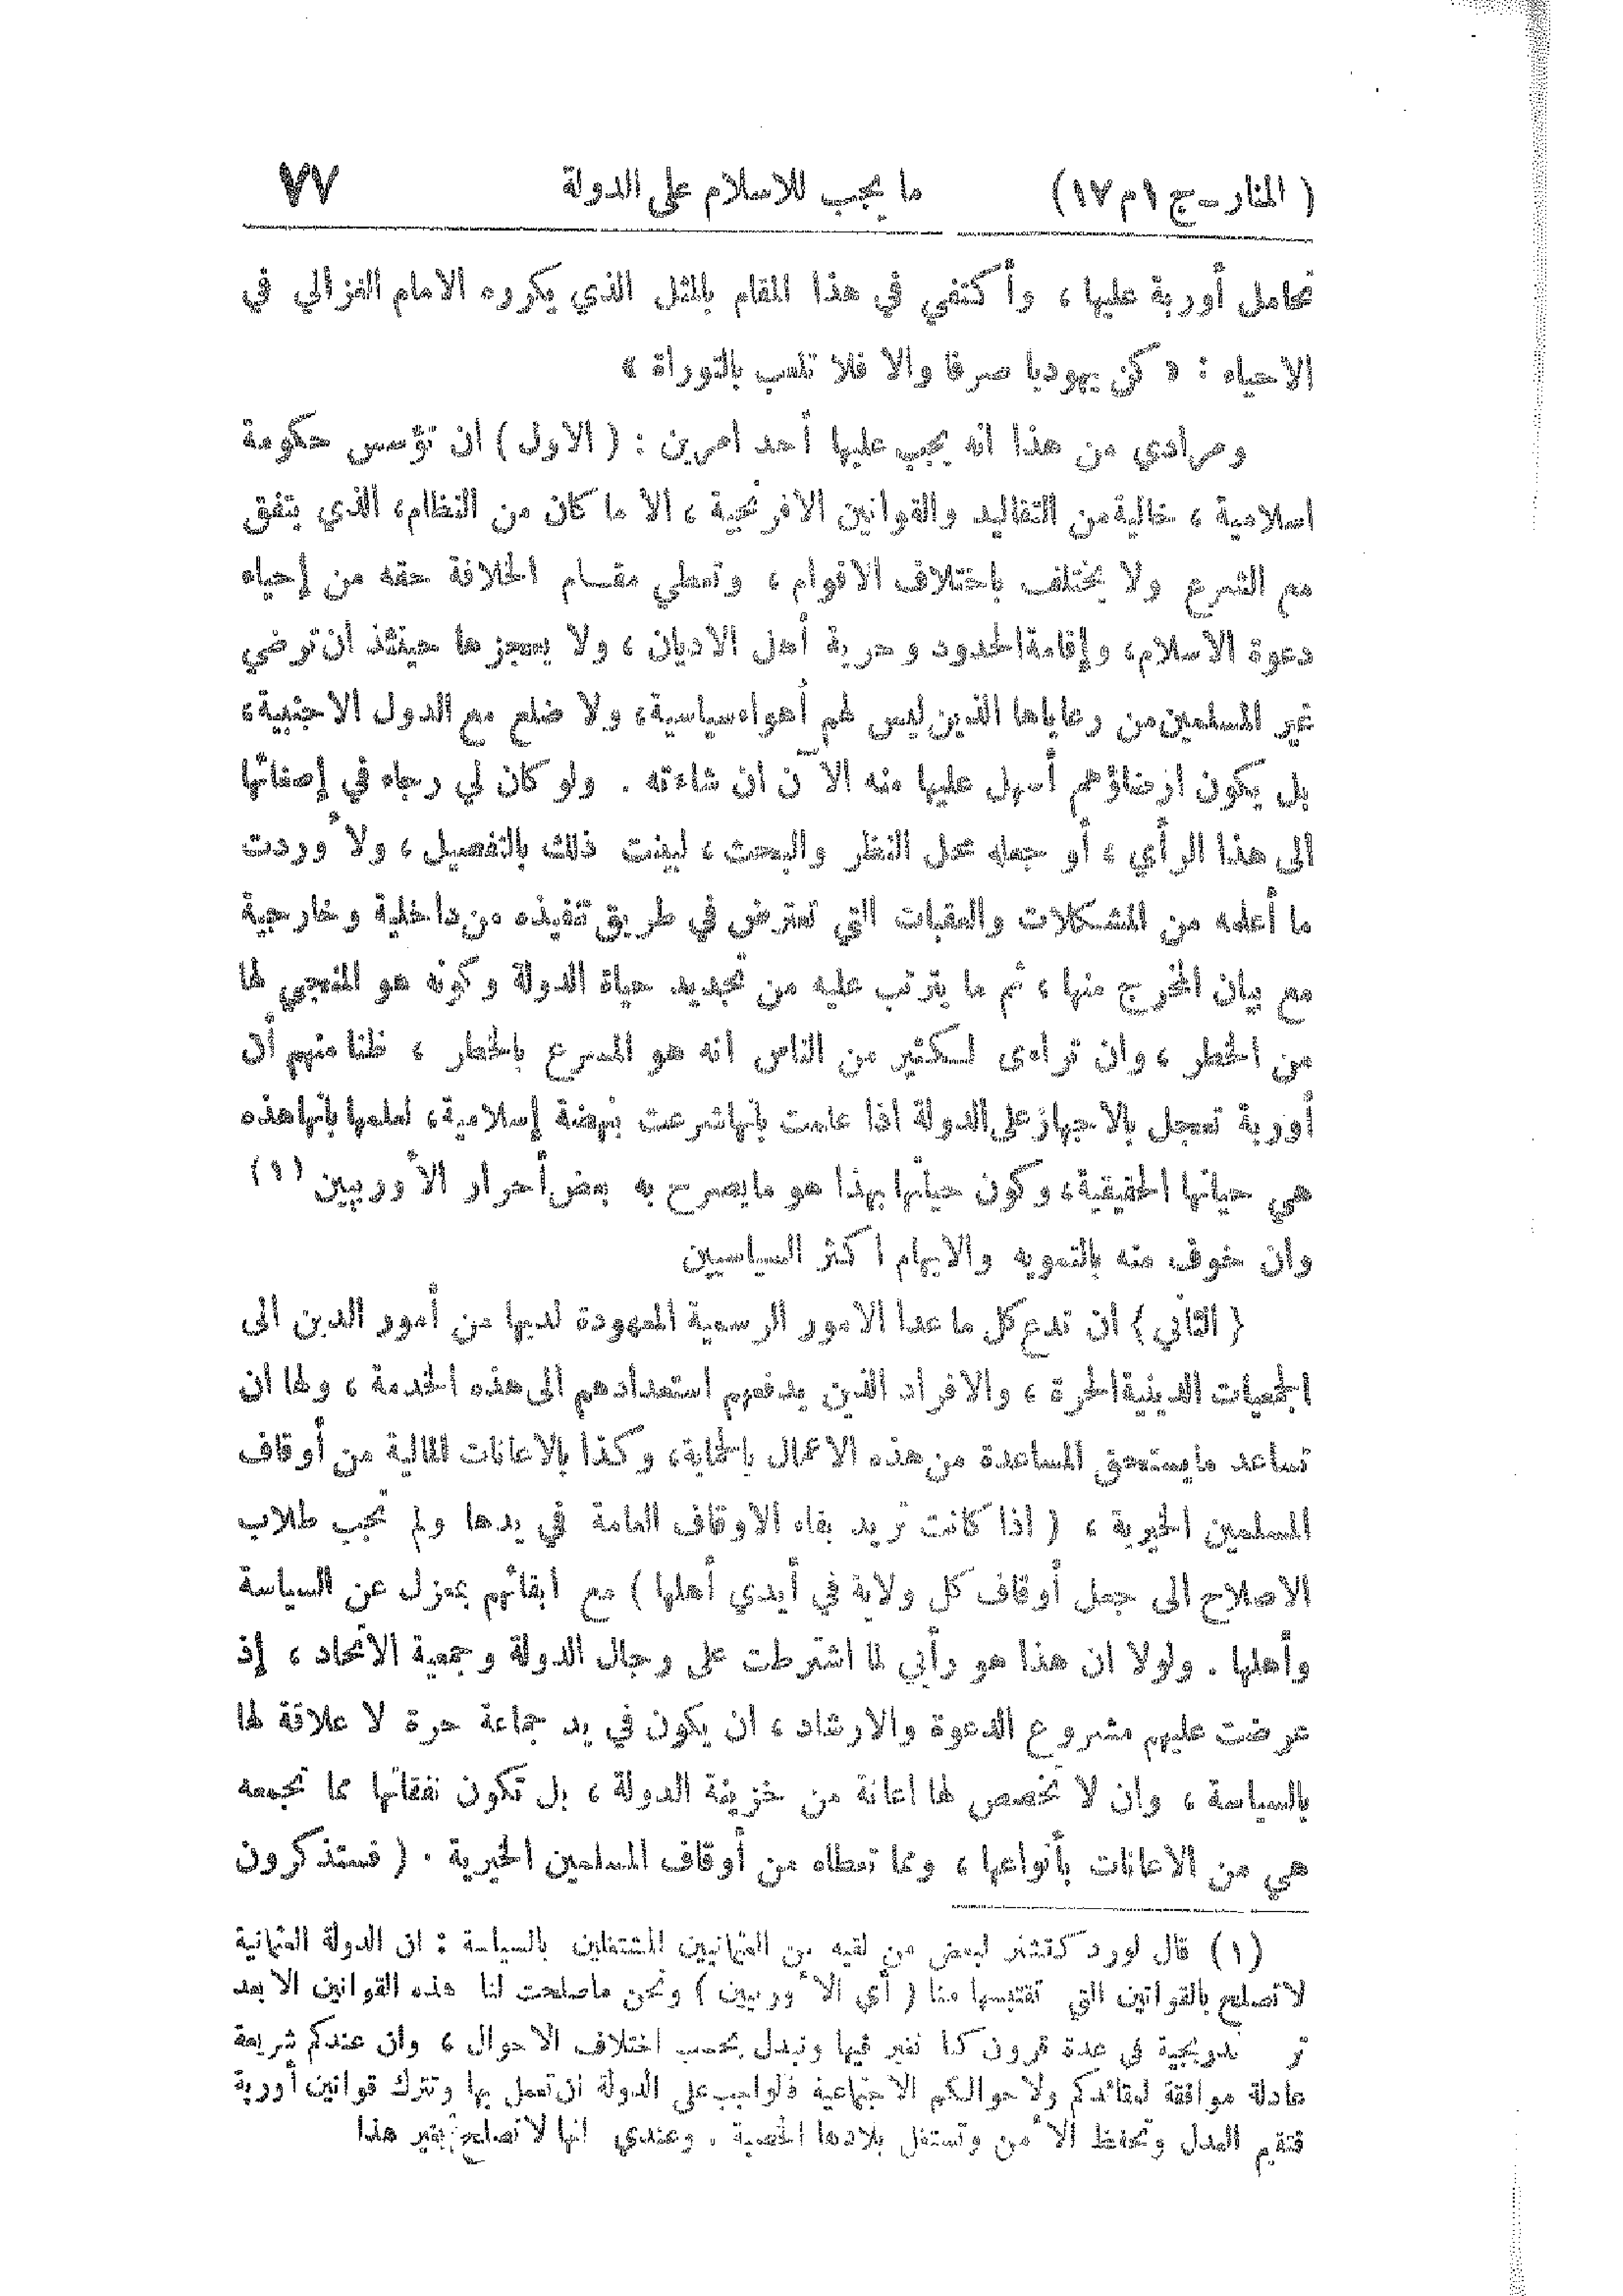 ( المنار – ج ١ م ١٧ ) ما يجب للاسلام على الدولة ٧٧
تحامل أوربة عليها ، وأكتفي في هذا المقام بالمثل الذي يكرره الامام الغزالي في
الاحياء : « كن يهوديا صرفا والا فلا تلعب بالتوراة »
ومرادي من هذا انه يجب عليها أحد امرين : ( الاول ) ان تؤسس حكومة
اسلامية ، خالية من التقاليد والقوانين الافرنجية ، الا ما كان من النظام، الذي يتفق
مع الشرع ولا يختلف باختلاف الاقوام ، وتعطي مقام الخلافة حقه من إحياء
دعوة الاسلام، وإقامة الحدود وحرية أهل الاديان ، ولا يعجزها حينئذ ان ترضي
غير المسلمين من رعاياها الذين ليس لهم أهواء سياسية، ولا ضلع مع الدول الاجنبية،
بل يكون ارضاؤهم أسهل عليها منه الآن ان شاءته . ولو كان لي رجاء في إصغائها
الى هذا الرأي ، أو جعله محل النظر والبحث ، لبينت ذلك بالتفصيل ، ولأوردت
ما أعلمه من المشكلات والعقبات التي تعترض في طريق تنفيذه من داخلية وخارجية
مع بيان المخرج منها ، ثم ما يترتب عليه من تجديد حياة الدولة وكونه هو المنجي لها
من الخطر ، وان تراءى لكثير من الناس انه هو المسرع بالخطر ، ظنا منهم أن
أوربة تعجل بالاجهاز على الدولة اذا علمت بأنها شرعت بنهضة إسلامية، لعلمها بأنها هذه
هي حياتها الحقيقية، وكون حياتها بهذا هو ما يصرح به بعض أحرار الأوربيين (١)
وان خوف منه بالتمويه والايهام اكثر السياسيين
{ الثاني } ان تدع كل ما عدا الامور الرسمية المعهودة لديها من أمور الدين الى
الجمعيات الدينية الحرة ، والافراد الذين يدفعهم استعدادهم الى هذه الخدمة ، ولها ان
تساعد ما يستحق المساعدة من هذه الاعمال بالحماية، وكذا بالاعانات المالية من أوقاف
المسلمين الخيرية ، ( اذا كانت تريد بقاء الاوقاف العامة في يدها ولم تجب طلاب
الاصلاح الى جعل أوقاف كل ولاية في أيدي أهلها ) مع ابقائهم بمعزل عن السياسة
وأهلها . ولولا ان هذا هو رأيي لما اشترطت على رجال الدولة وجمعية الاتحاد ، إذ
عرضت عليهم مشروع الدعوة والارشاد ، ان يكون في يد جماعة حرة لا علاقة لها
بالسياسة ، وان لا تخصص لها اعانة من خزينة الدولة ، بل تكون نفقاتها مما تجمعه
هي من الاعانات بأنواعها ، ومما تعطاه من أوقاف المسلمين الخيرية . ( فستذكرون
(١) قال لورد كتشنر لبعض من لقيه من العثمانيين المشتغلين بالسياسة : ان الدولة العثمانية
لا تصلح بالقوانين التي تقتبسها منا ( أي الأوربيين ) ونحن ما صلحت لنا هذه القوانين الا بعد
تر بدريجية في عدة قرون كنا نغير فيها ونبدل بحسب اختلاف الاحوال ، وان عندكم شريعة
عادلة موافقة لعقائدكم ولاحوالكم الاجتماعية فالواجب على الدولة ان تعمل بها وتترك قوانين أوربة
فتقيم العدل وتحفظ الأمن وتستغل بلادها الخصبة . وعندي انها لا تصلح بغير هذا